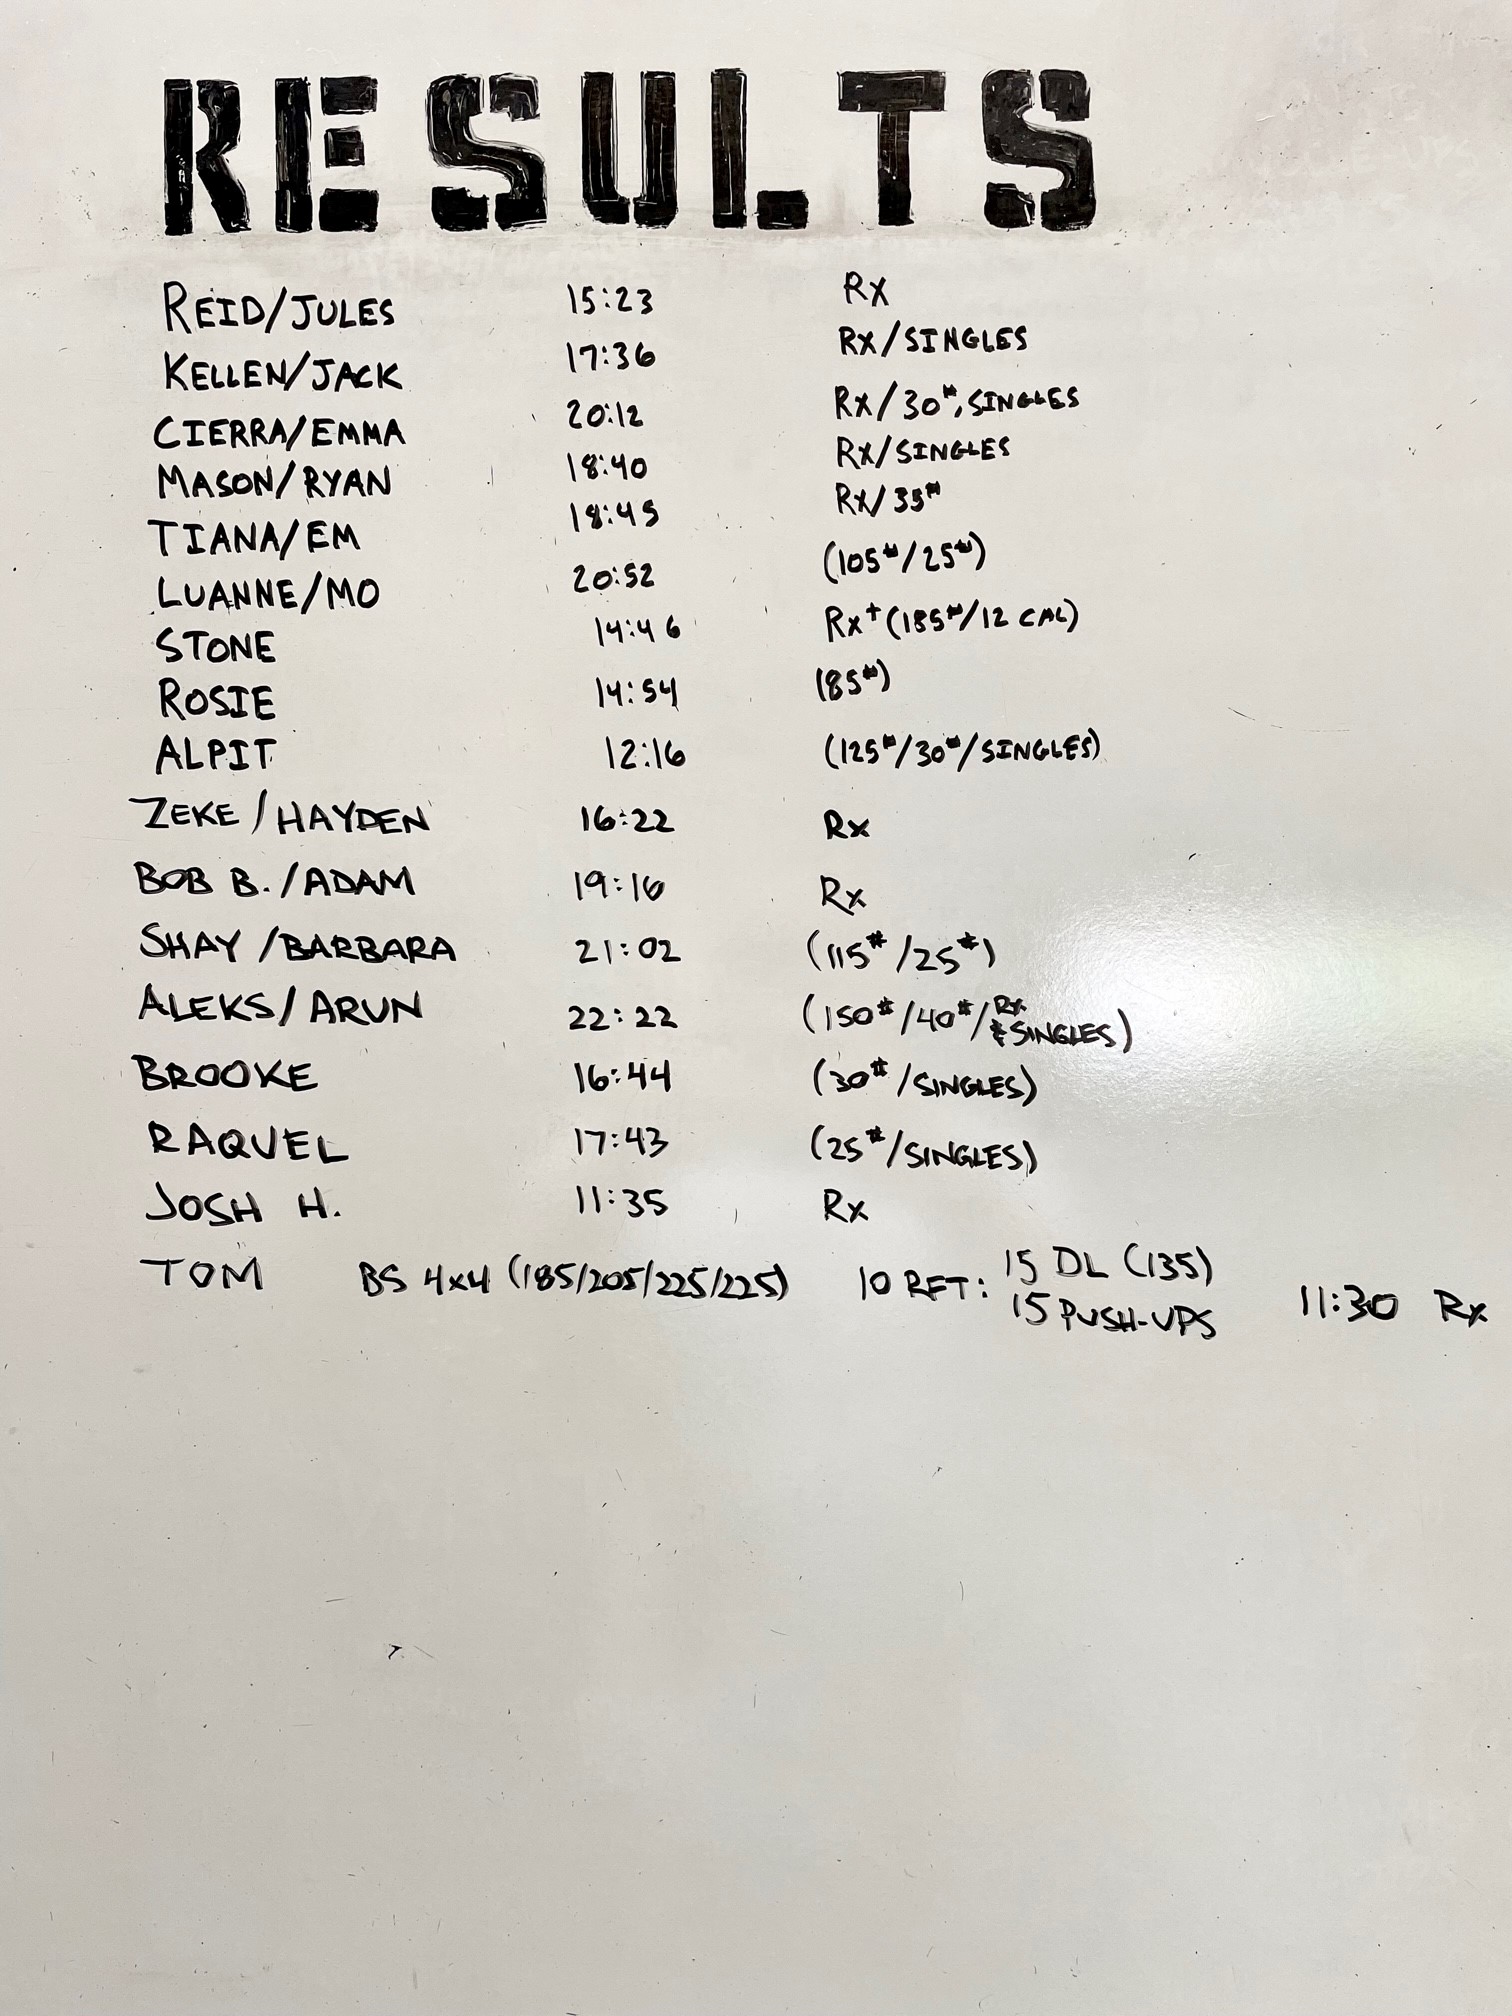 RESULTS
REID/JULES 15:23 Rx
KELLEN/JACK 17:36 Rx/SINGLES
CIERRA/EMMA 20:12 Rx/30#, SINGLES
MASON/RYAN 18:40 Rx/SINGLES
TIANA/EM 18:45 Rx/35#
LUANNE/MO 20:52 (105#/25#)
STONE 14:46 Rx+ (185#/12 CAL)
ROSIE 14:54 (85#)
ALPIT 12:16 (125#/30#/SINGLES)
ZEKE/HAYDEN 16:22 Rx
BOB B./ADAM 19:16 Rx
SHAY/BARBARA 21:02 (115#/25#)
ALEKS/ARUN 22:22 (150#/40#/Rx & SINGLES)
BROOKE 16:44 (30#/SINGLES)
RAQUEL 17:43 (25#/SINGLES)
JOSH H. 11:35 Rx
TOM BS 4x4 (185/205/225/225) 10 RFT: 15 DL (135)
15 PUSH-UPS 11:30 Rx